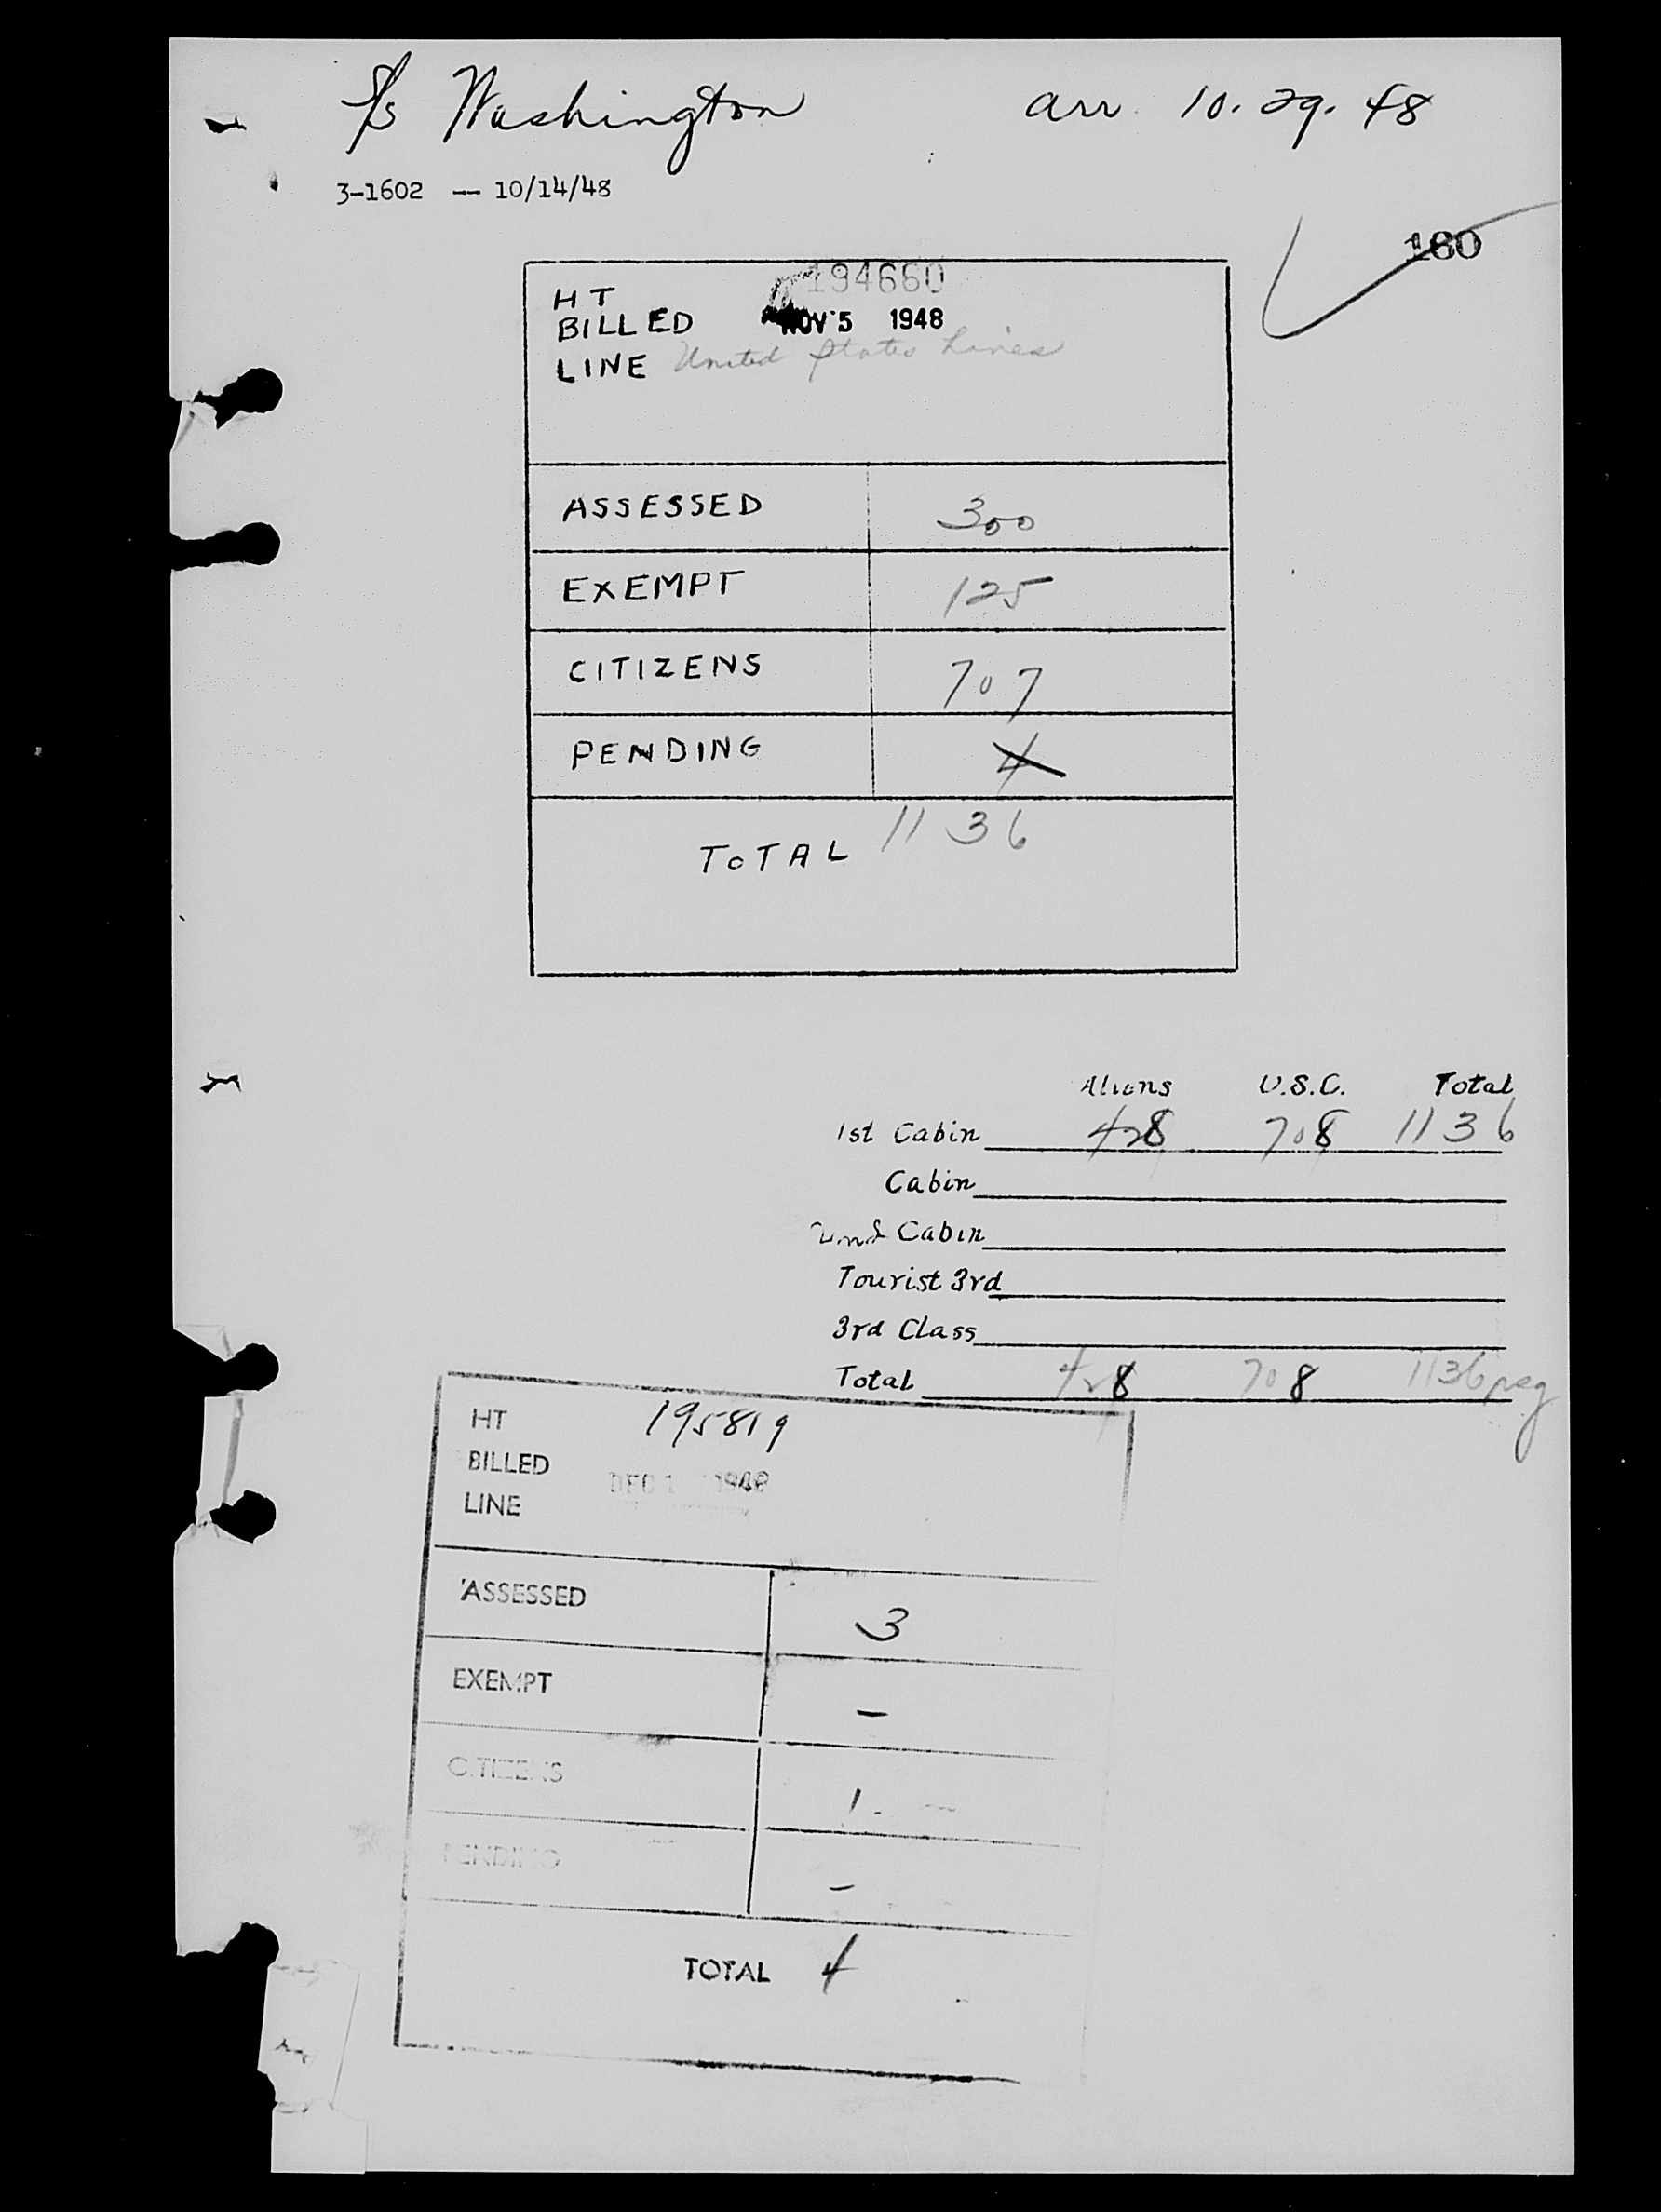 S/S Washington arr. 10.29.48
3-1602 -- 10/14/48
160
194660
HT
BILLED NOV 5 1948
LINE United States Lines
ASSESSED 300
EXEMPT 125
CITIZENS 707
PENDING 4
TOTAL 1136
Aliens U.S.C. Total
1st Cabin 428 708 1136
Cabin
2nd Cabin
Tourist 3rd
3rd Class
Total 428 708 1136 psg
HT 195819
BILLED DEC 1 1948
LINE
ASSESSED 3
EXEMPT -
CITIZENS 1
PENDING -
TOTAL 4